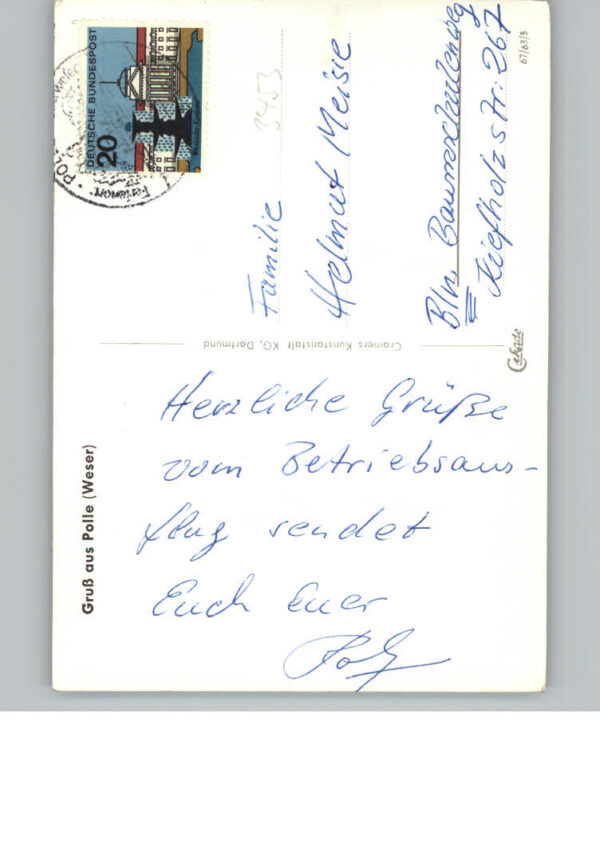 Gruß aus Polle (Weser)
Herzliche Grüße
vom Betriebsaus-
flug sendet
Euch Euer
Cramers Kunstanstalt KG, Dortmund
DEUTSCHE BUNDESPOST
20
3453
Familie
Helmut Meisie
Bln. Baumschulenweg
Kiefholzstr. 267
67/63/5